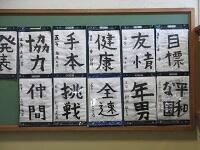 目標
友情
健康
手本
協力
発表
年男
全速
挑戦
仲間